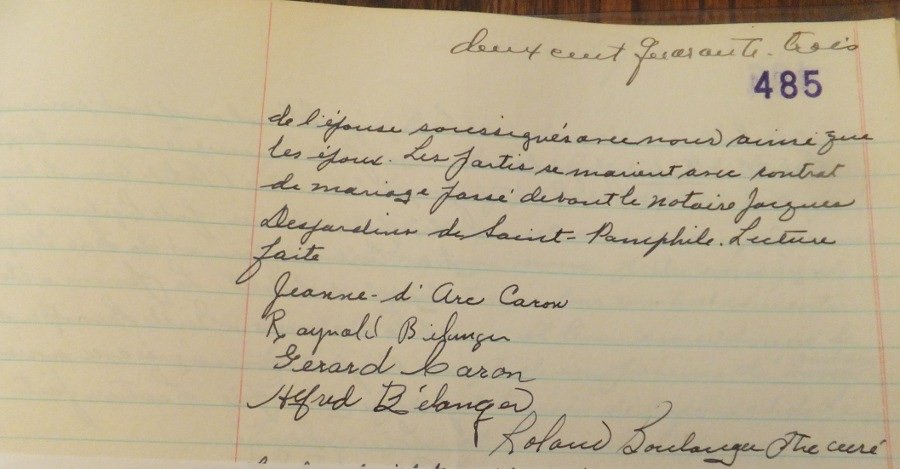 deux cent quarante-trois
485
de l'épouse soussignés avec nous ainsi que
les époux. Les partis se marient avec contrat
de mariage passé devant le notaire Jacques
Desjardins de Saint-Pamphile. Lecture
faite
Jeanne-d'Arc Caron
Raynald Bélanger
Gérard Caron
Alfred Bélanger
Roland Boulanger Ptre curé